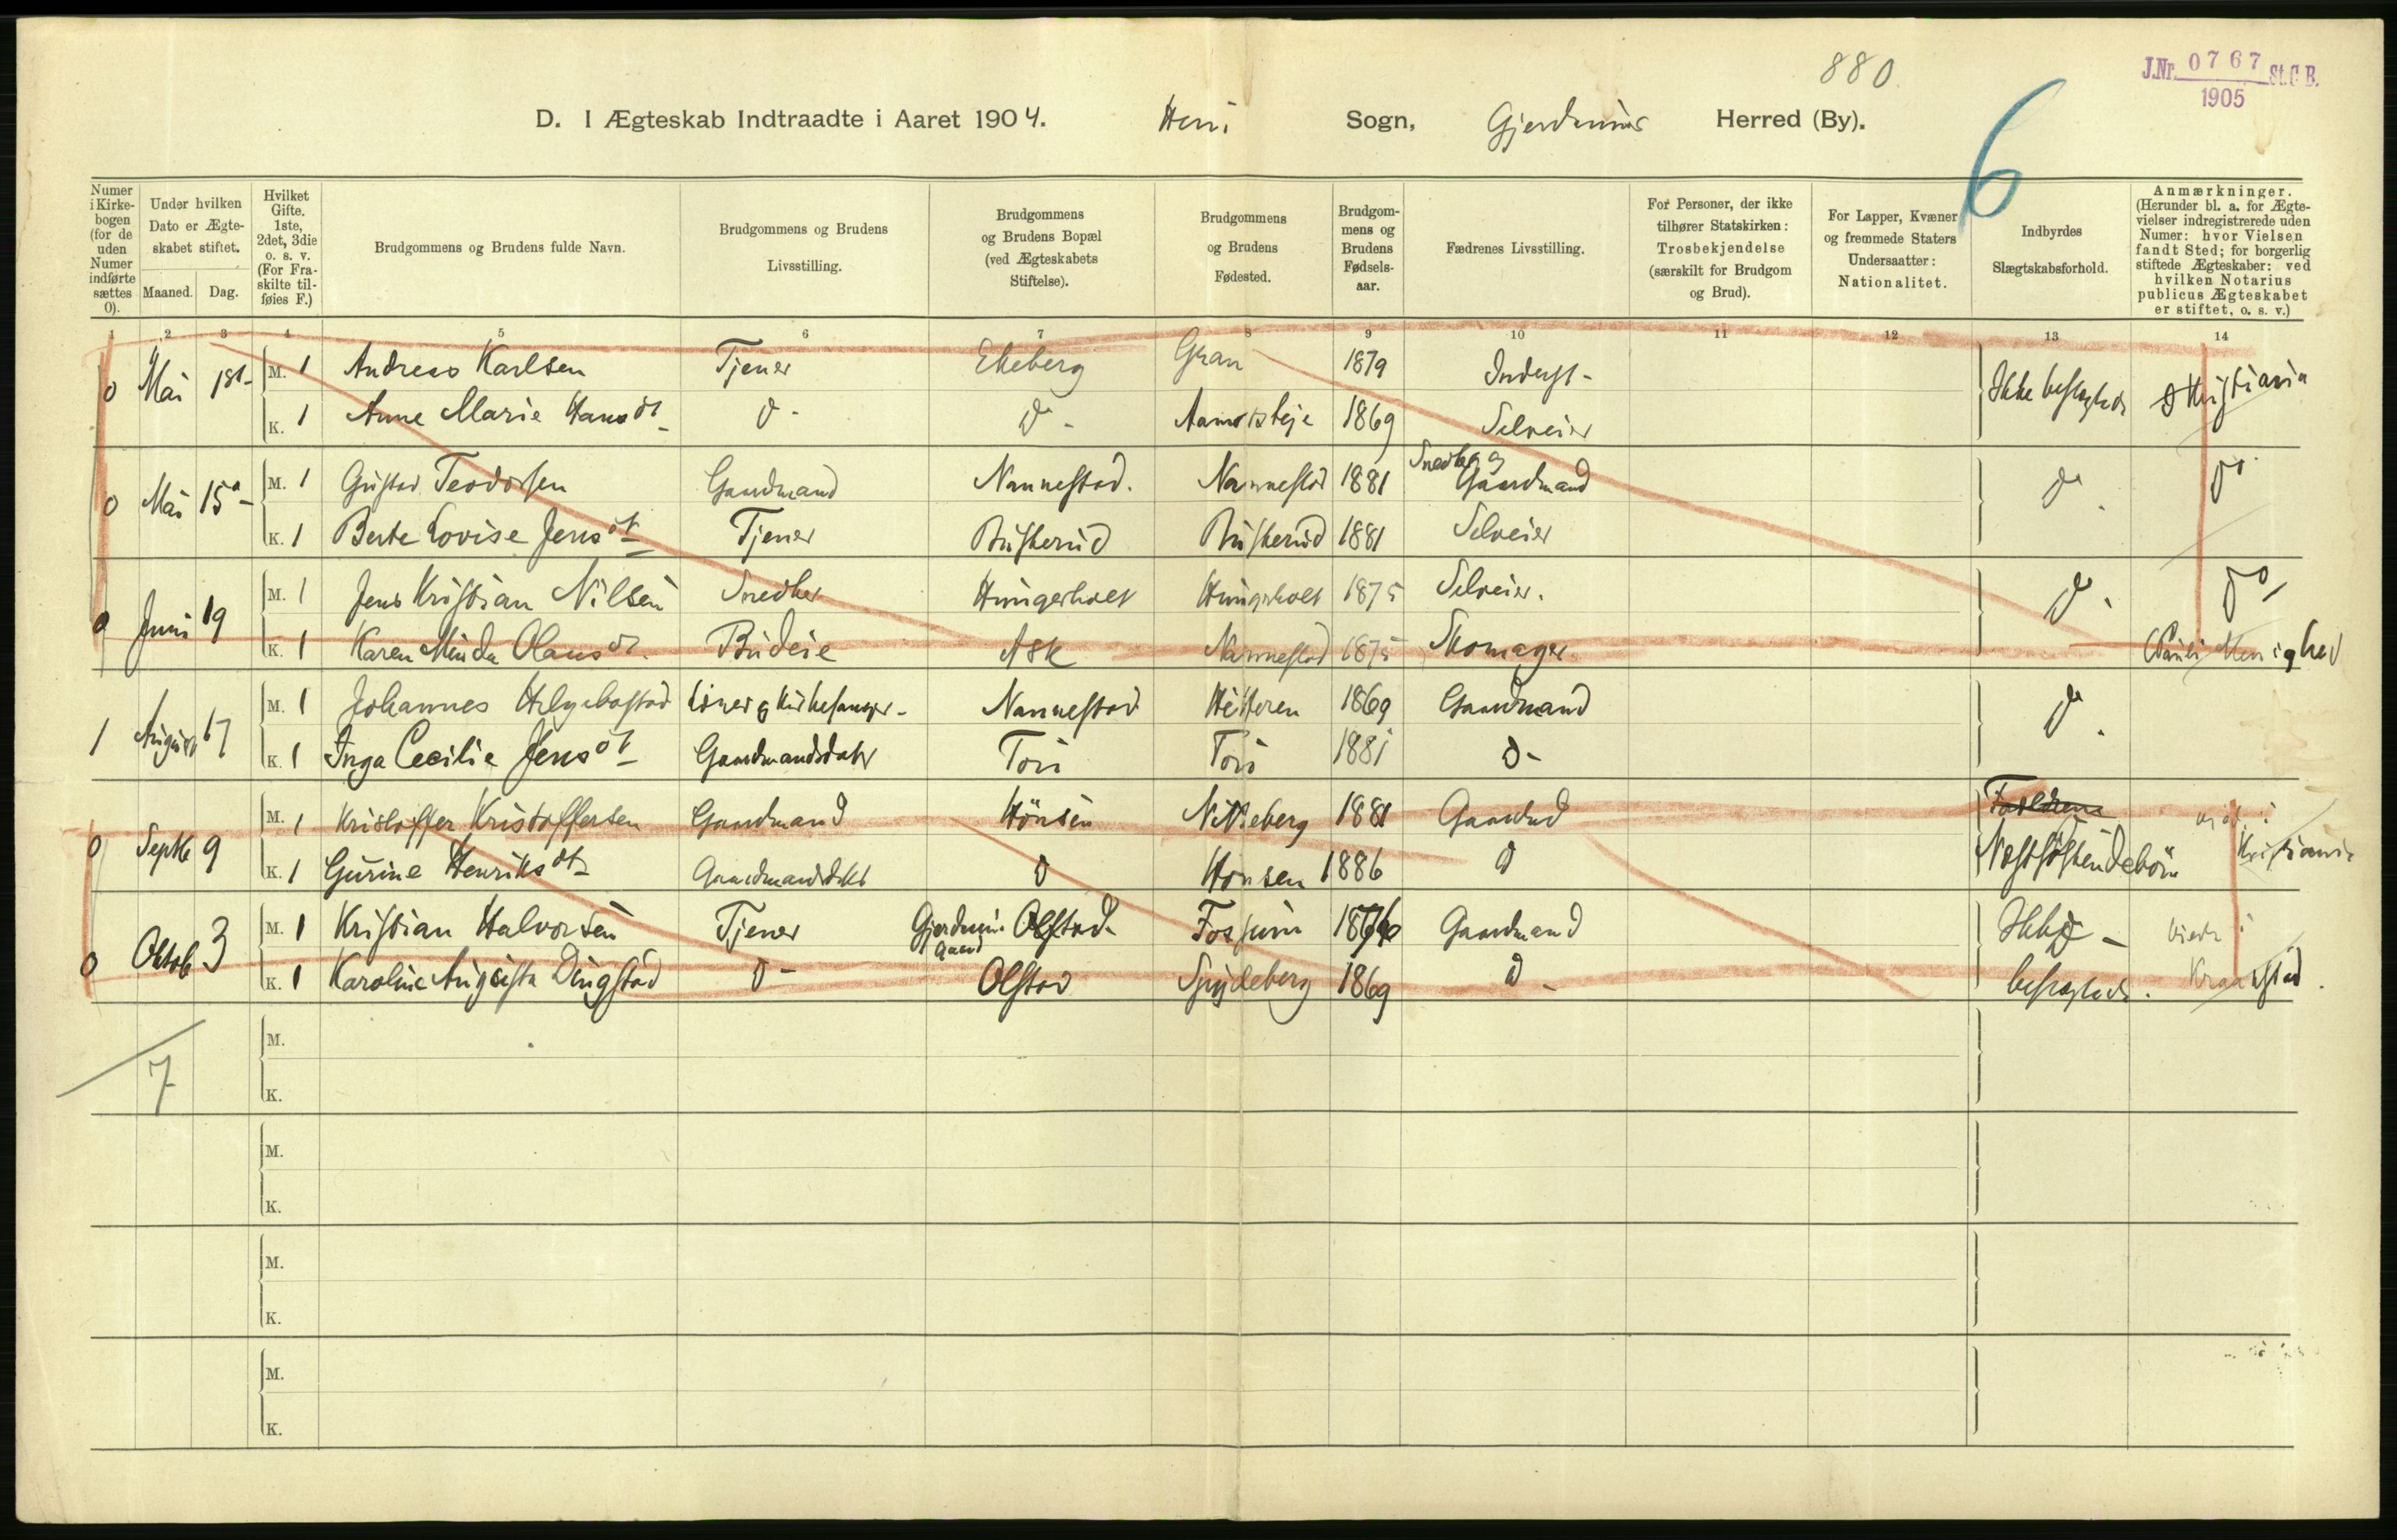 880
J.Nr. 0767 St.C.B.
1905
D. I Ægteskab Indtraadte i Aaret 1904. Heni Sogn, Gjerdrums Herred (By).
6
Numer i Kirkebogen (for de uden Numer indførte sættes 0).
Under hvilken Dato er Ægteskabet stiftet.
Maaned. Dag.
Hvilket Gifte. 1ste, 2det, 3die o. s. v. (For Fraskilte tilføies F.)
Brudgommens og Brudens fulde Navn.
Brudgommens og Brudens Livsstilling.
Brudgommens og Brudens Bopæl (ved Ægteskabets Stiftelse).
Brudgommens og Brudens Fødested.
Brudgommens og Brudens Fødselsaar.
Fædrenes Livsstilling.
For Personer, der ikke tilhører Statskirken: Trosbekjendelse (særskilt for Brudgom og Brud).
For Lapper, Kvæner og fremmede Staters Undersaatter: Nationalitet.
Indbyrdes Slægtskabsforhold.
Anmærkninger. (Herunder bl. a. for Ægtevielser indregistrerede uden Numer: hvor Vielsen fandt Sted; for borgerlig stiftede Ægteskaber: ved hvilken Notarius publicus Ægteskabet er stiftet, o. s. v.)
1 2 3 4 5 6 7 8 9 10 11 12 13 14
0 Mai M. 1 Andreas Karlsen Tjener Ekeberg Gran 1879 Inderst - Ikke beslægtede Kristiania
K. 1 Anne Marie Hansdt D - D - 1869 Selveier
Snedker og
0 Mai 15 M. 1 Gustav Teodorsen Gaardmand Nannestad. Nannestad 1881 Gaardmand D. Do
K. 1 Berte Lovise Jensdt Tjener Buskerud Buskerud 1881 Selveier
0 Juni 19 M. 1 Jens Kristian Nilsen Snedker Hungerholt Hungerholt 1875 Selveier. D. Do
K. 1 Karen Minda Olausdt. Budeie Ask Nannestad 1875 Skomager (Pauli Menighed
1 August 17 M. 1 Johannes Helgebostad Lærer & Kirkesanger - Nannestad Hitteren 1869 Gaardmand D.
K. 1 Inga Cecilie Jensdt Gaardmandsdatr Tori Tori 1881 D -
0 Septb 9 M. 1 Kristoffer Kristoffersen Gaardmand Hönsen Nitteberg 1881 Gaardmd Forældrene viet i
K. 1 Gurine Henriksdt Gaardmandsdatt D Hønsen 1886 D Næstsöskendebörn Kristiania
0 Oktob 3 M. 1 Kristian Halvorsen Tjener Gjerdrum Olstad Fossum Gaardmand Ikke - viede i
Gaard
K. 1 Karoline Augusta Dingstad D - Olstad Spydeberg 1869 D - beslægtede. Kraakstad.
7
M.
K.
M.
K.
M.
K.
M.
K.